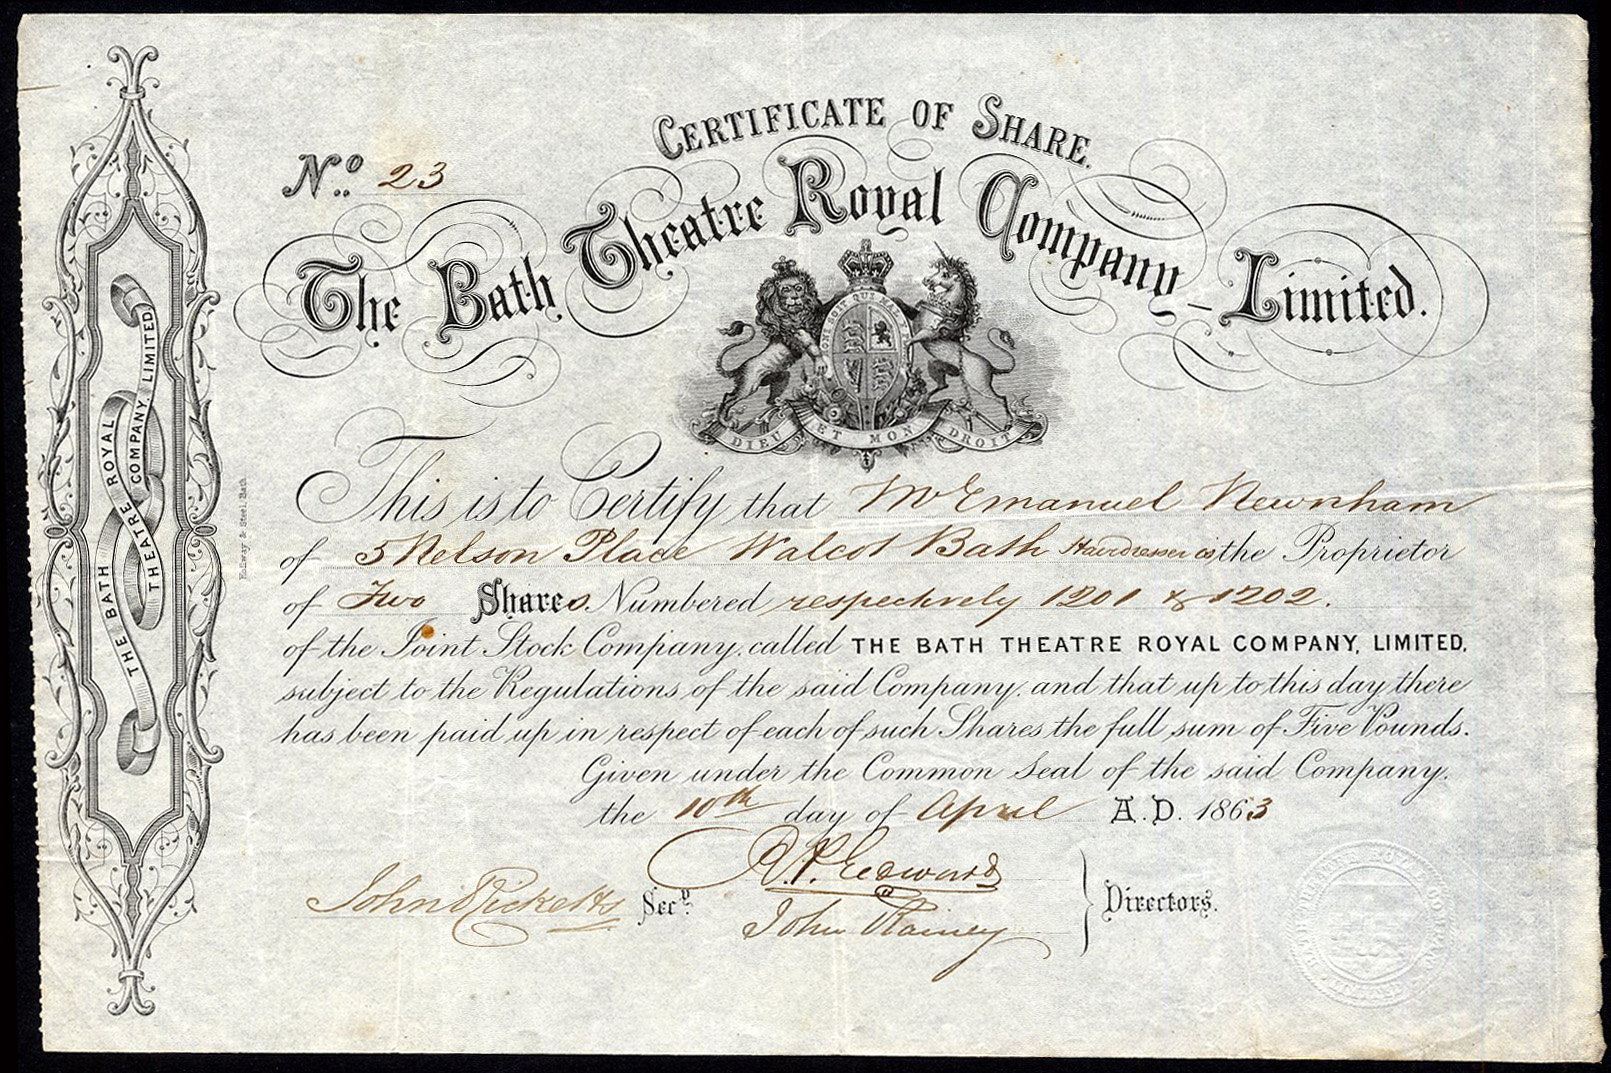 CERTIFICATE OF SHARE.
No. 23
The Bath Theatre Royal Company Limited.
DIEU ET MON DROIT
This is to Certify that Mr Emanuel Newnham
of 5 Nelson Place Walcot Bath Hairdresser is the Proprietor
of Two Shares. Numbered respectively 1201 & 1202.
of the Joint Stock Company, called THE BATH THEATRE ROYAL COMPANY, LIMITED,
subject to the Regulations of the said Company, and that up to this day there
has been paid up in respect of each of such Shares the full sum of Five Pounds.
Given under the Common Seal of the said Company.
the 10th day of April A.D. 1863
John Ricketts Secy.
Edwards
John Rainey
Directors.
THE BATH THEATRE ROYAL COMPANY, LIMITED.
& Steel, Bath.